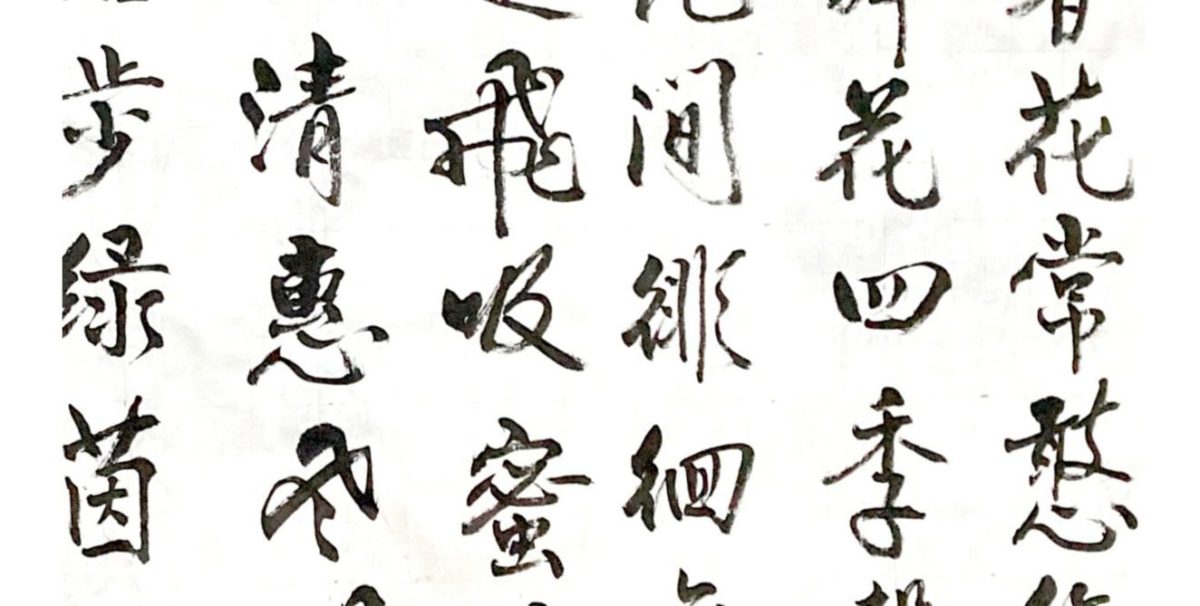 花常憨
花四季
间徘徊
飞吸蜜
清惠冬
步绿茵